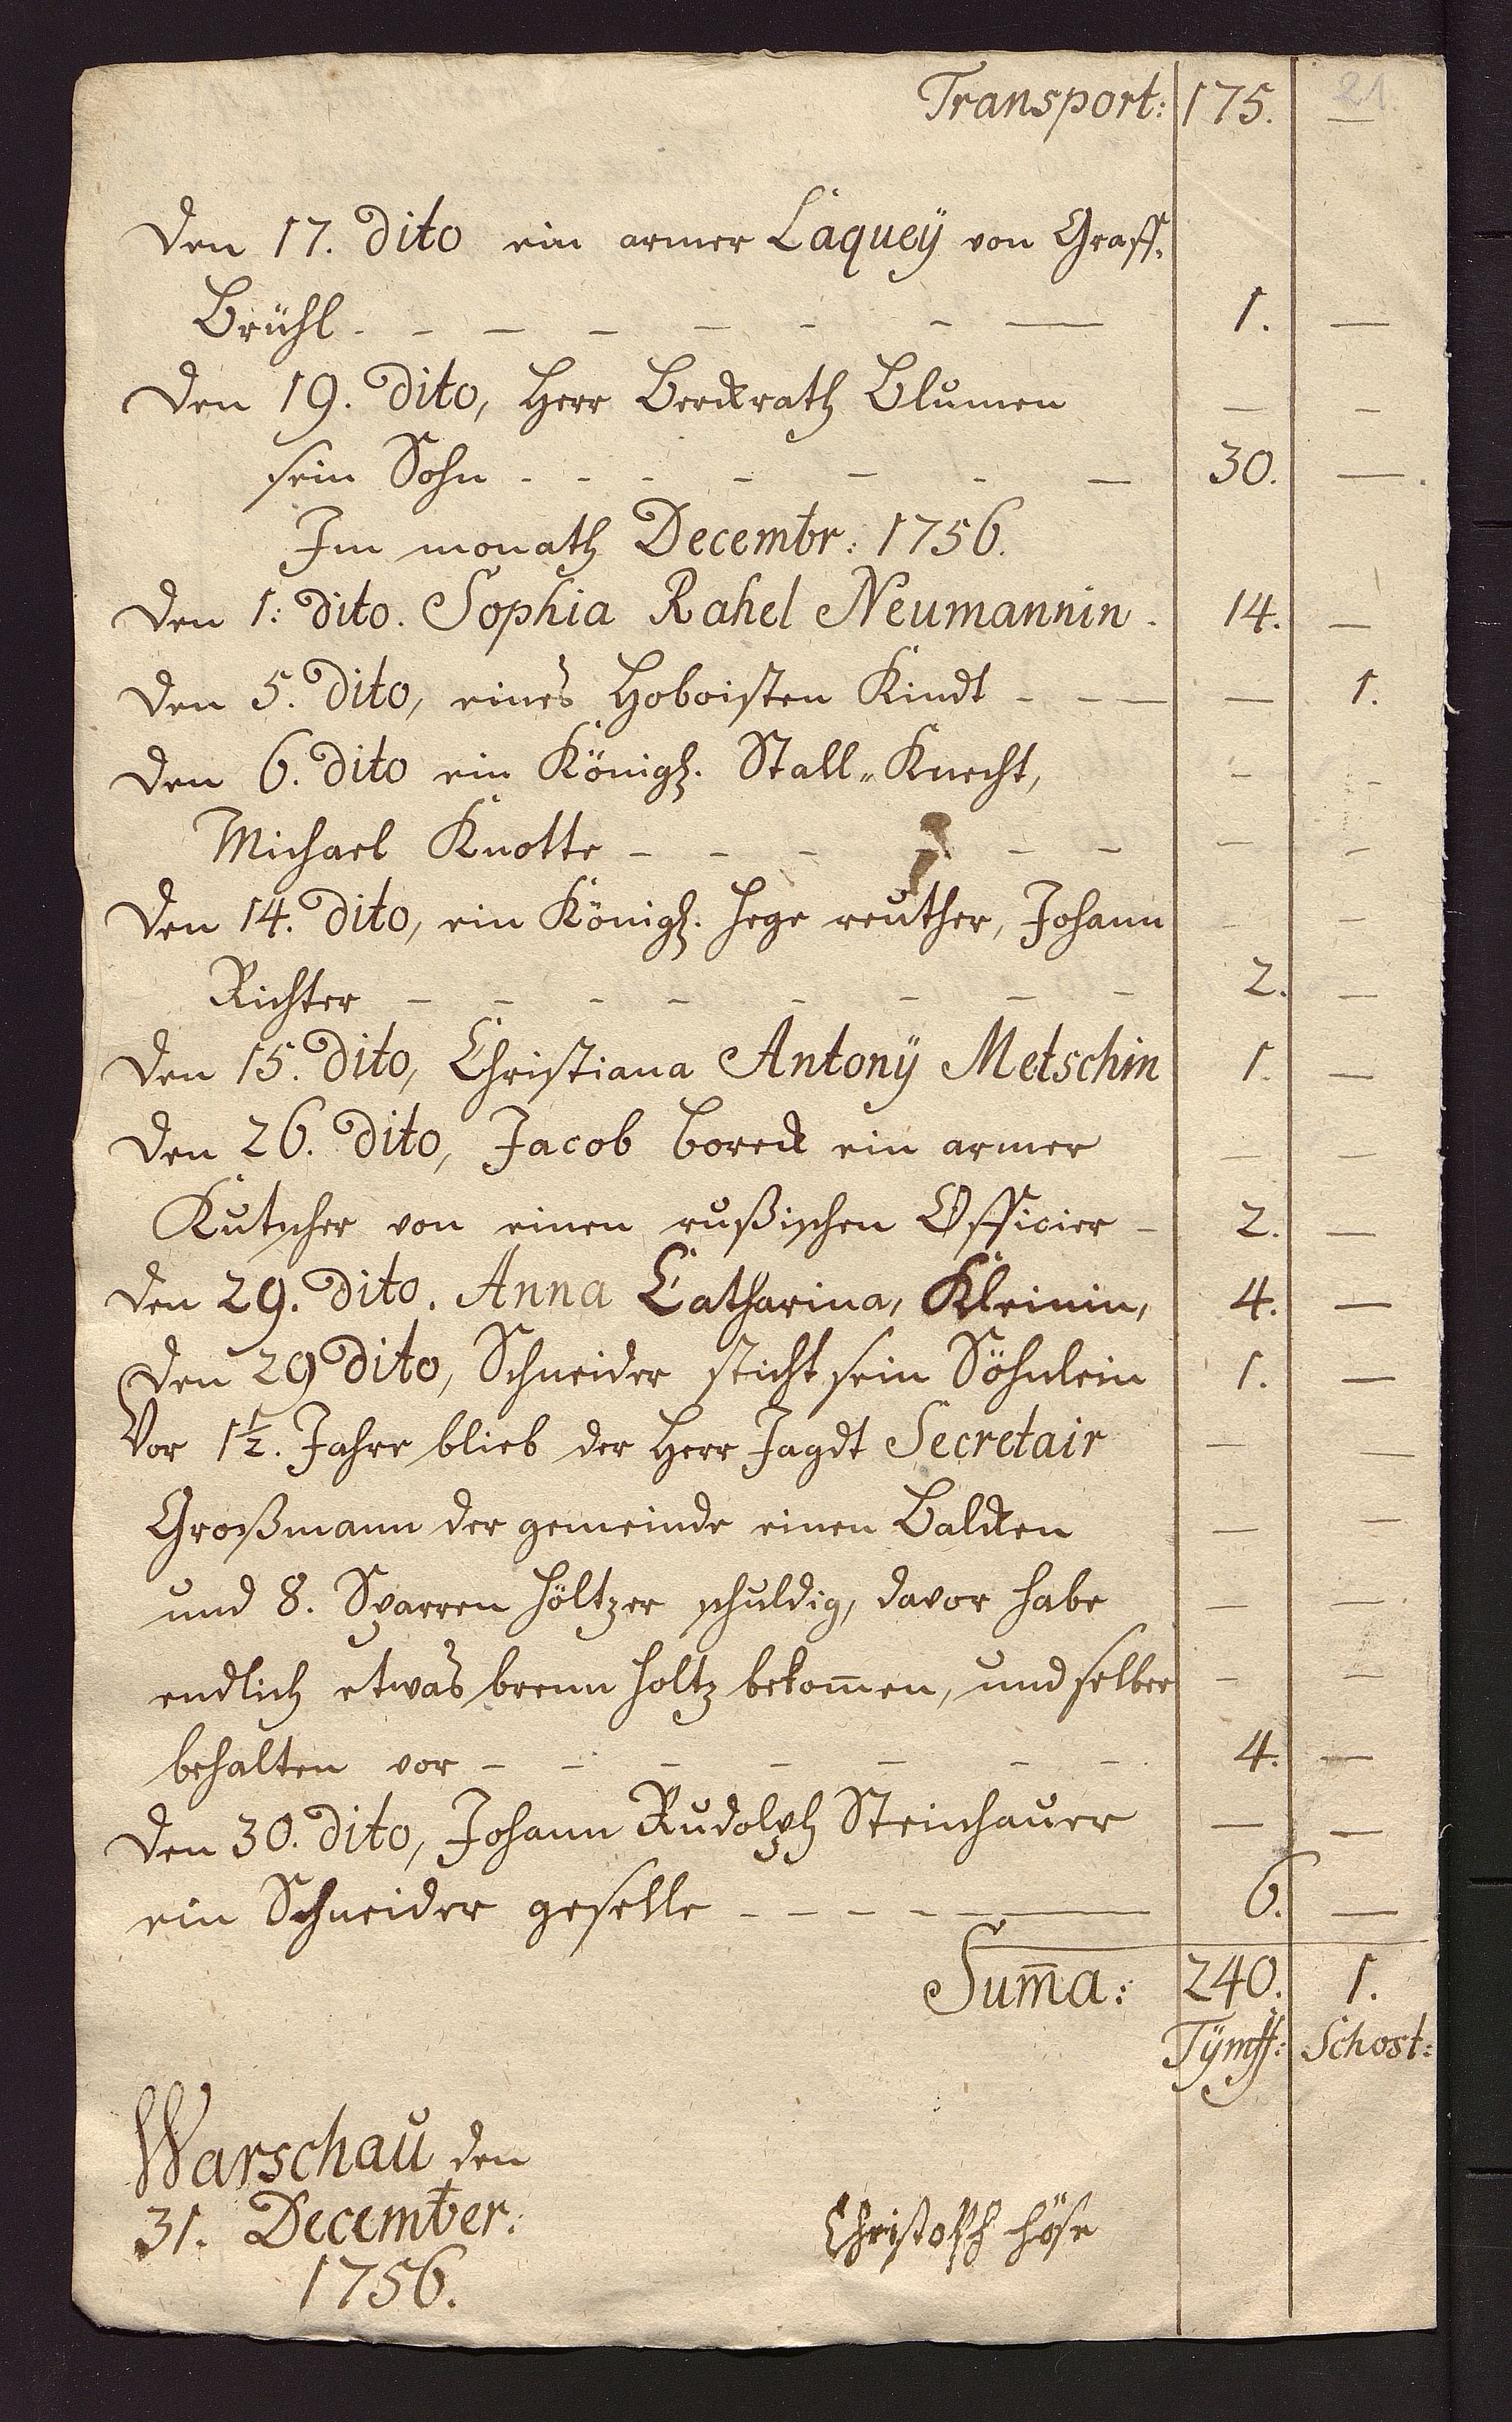 21
Transport: 175. —
Den 17. Dito ein armer Laqueÿ von Graff.
Brühl - - - - - - - — 1. —
Den 19. Dito, Herr Berckrath Blumen — -
sein Sohn - - - - - - — 30. —
Im monath Decembr: 1756.
Den 1: Dito. Sophia Rahel Neumannin - 14. —
Den 5. Dito, eines Hoboisten Kindt - - — — 1.
Den 6. Dito ein Königl. Stall„Knecht, - -
Michael Knotte - - - - - - - -
Den 14. Dito, ein Königl. Hege reuther, Johann - -
Richter - - - - - - - - 2. —
Den 15. Dito, Christiana Antonÿ Metschin 1. —
Den 26. Dito, Jacob Boreck ein armer — —
Kutscher von einen rußischen Officier - 2. —
Den 29. Dito. Anna Catharina, Kleinin, 4. —
Den 29 Dito, Schneider sticht sein Söhnlein 1. —
Vor 1½. Jahre blieb der Herr Jagdt Secretair — —
Großmann der gemeinde einen Balcken — —
und 8. Sparren höltzer schuldig, davor habe — —
endlich etwas brenn holtz bekom̅en, und selber - —
behalten vor - - - - - - - 4. —
Den 30. Dito, Johann Rudolph Steinhauer — —
ein Schneider geselle - - - - — 6. —
Sum̅a: 240. 1.
Tÿmff: Schost:
Warschau den
31. December:
1756.
Christoph Höse